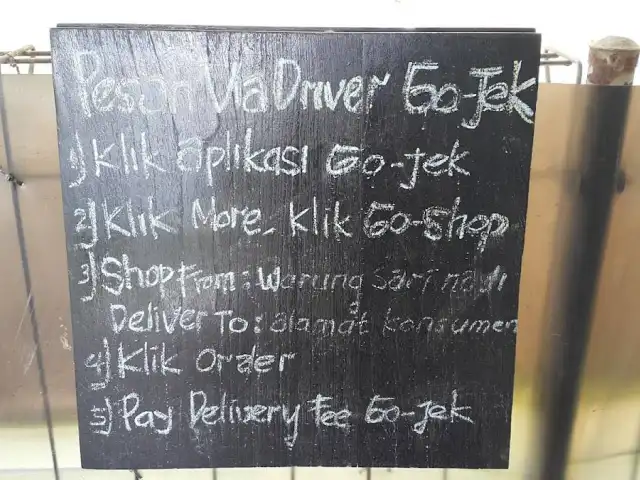 Pesan Via Driver Go-Jek
1) Klik aplikasi Go-jek
2) Klik More, klik Go-Shop
3) Shop From: Warung Sari
Deliver To: alamat konsumen
4) Klik Order
5) Pay Delivery Fee Go-Jek